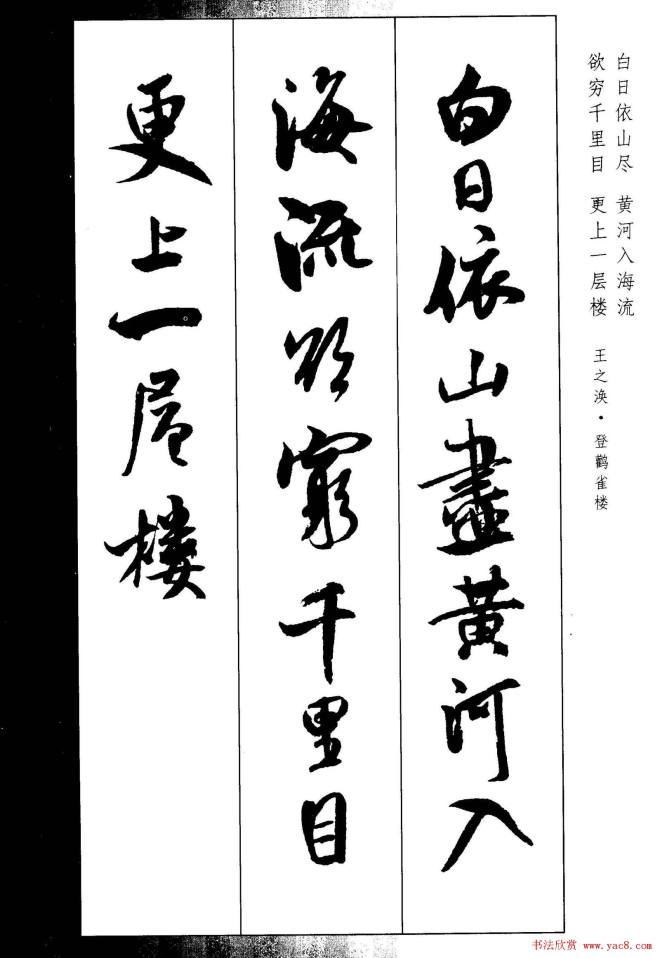 白日依山尽 黄河入海流
欲穷千里目 更上一层楼
王之涣·登鹳雀楼
白日依山盡黄河入
海流欲窮千里目
更上一層樓
书法欣赏 www.yac8.com